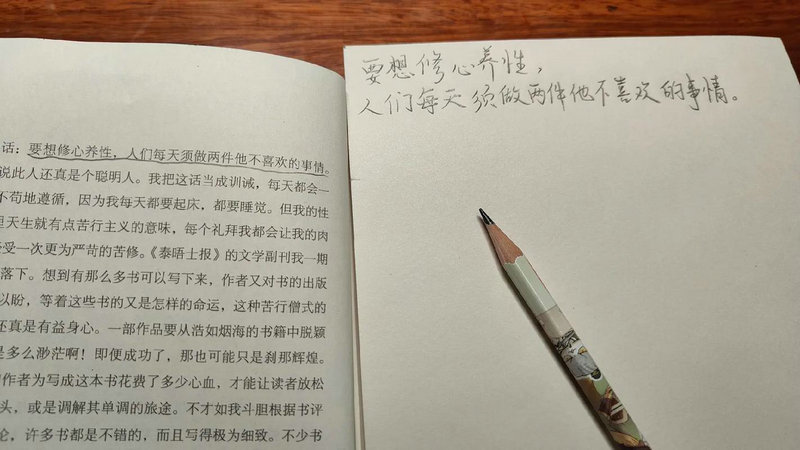 话：要想修心养性，人们每天须做两件他不喜欢的事情。
说此人还真是个聪明人。我把这话当成训诫，每天都会一
不苟地遵循，因为我每天都要起床，都要睡觉。但我的性
里天生就有点苦行主义的意味，每个礼拜我都会让我的肉
受一次更为严苛的苦修。《泰晤士报》的文学副刊我一期
落下。想到有那么多书可以写下来，作者又对书的出版
以盼，等着这些书的又是怎样的命运，这种苦行僧式的
还真是有益身心。一部作品要从浩如烟海的书籍中脱颖
是多么渺茫啊！即便成功了，那也可能只是刹那辉煌。
作者为写成这本书花费了多少心血，才能让读者放松
头，或是调解其单调的旅途。不才如我斗胆根据书评
论，许多书都是不错的，而且写得极为细致。不少书
要想修心养性，
人们每天须做两件他不喜欢的事情。